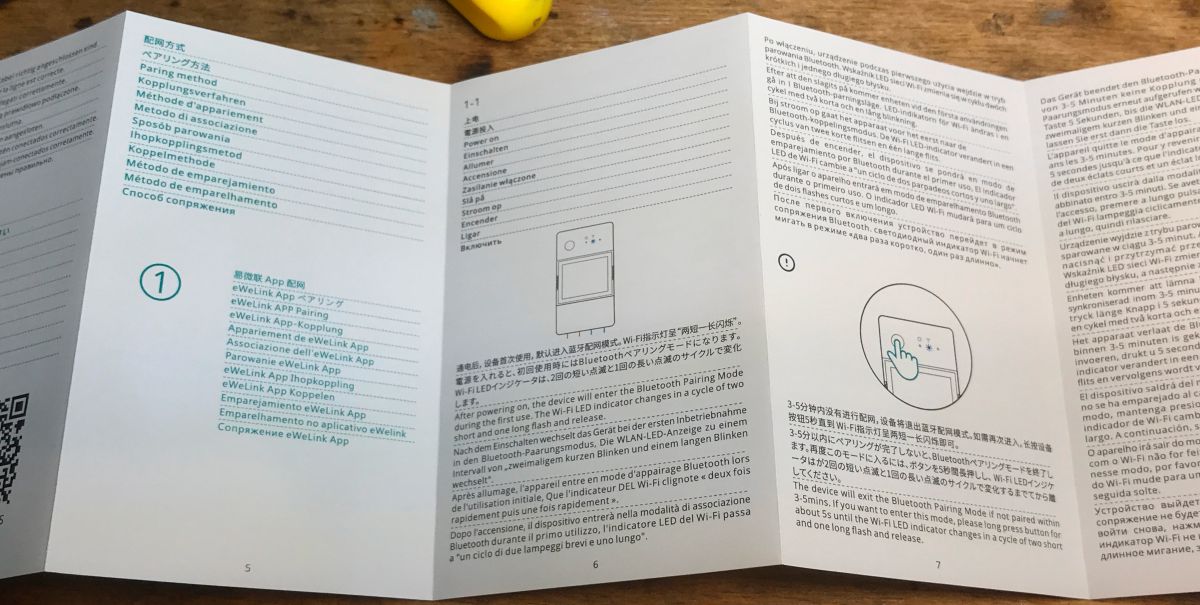 abel richtig angeschlossen sind
la ligne est correcte.
llegati correttamente.
prawidłowo podłączone.
aangesloten.
tén conectados correctamente.
jam conectados corretamente.
ены правильно.
5
配网方式
ペアリング方法
Paring method
Kopplungsverfahren
Méthode d'appariement
Metodo di associazione
Sposób parowania
Ihopkopplingsmetod
Koppelmethode
Método de emparejamiento
Método de emparelhamento
Способ сопряжения
1
易微联 App 配网
eWeLink App ペアリング
eWeLink APP Pairing
eWeLink App-Kopplung
Appariement de eWeLink App
Associazione dell'eWeLink App
Parowanie eWeLink App
eWeLink App Ihopkoppling
eWeLink App Koppelen
Emparejamiento eWeLink App
Emparelhamento no aplicativo eWeLink
Сопряжение eWeLink App
5
1-1
上电
電源投入
Power on
Einschalten
Allumer
Accensione
Zasilanie włączone
Slå på
Stroom op
Encender
Ligar
Включить
通电后，设备首次使用，默认进入蓝牙配网模式。Wi-Fi指示灯呈“两短一长闪烁”。
電源を入れると、初回使用時にはBluetoothペアリングモードになります。
Wi-Fi LEDインジケータは、2回の短い点滅と1回の長い点滅のサイクルで変化
します。
After powering on, the device will enter the Bluetooth Pairing Mode
during the first use. The Wi-Fi LED indicator changes in a cycle of two
short and one long flash and release.
Nach dem Einschalten wechselt das Gerät bei der ersten Inbetriebnahme
in den Bluetooth-Paarungsmodus, Die WLAN-LED-Anzeige zu einem
Intervall von „zweimaligem kurzen Blinken und einem langen Blinken
wechselt".
Après allumage, l'appareil entre en mode d'appairage Bluetooth lors
de l'utilisation initiale, Que l'indicateur DEL Wi-Fi clignote « deux fois
rapidement puis une fois rapidement ».
Dopo l'accensione, il dispositivo entrerà nella modalità di associazione
Bluetooth durante il primo utilizzo, l'indicatore LED del Wi-Fi passa
a "un ciclo di due lampeggi brevi e uno lungo".
6
Po włączeniu, urządzenie podczas pierwszego użycia wejdzie w tryb
parowania Bluetooth. Wskaźnik LED sieci Wi-Fi zmienia się w cyklu dwóch
krótkich i jednego długiego błysku.
Efter att den slagits på kommer enheten vid den första användningen
gå in i Bluetooth-parningsläge. LED-indikatorn för Wi-Fi ändras i en
cykel med två korta och en lång blinkning.
Bij stroom op gaat het apparaat voor het eerst naar de
Bluetooth-koppelingsmodus. De Wi-Fi LED-indicator verandert in een
cyclus van twee korte flitsen en één lange flits.
Después de encender, el dispositivo se pondrá en modo de
emparejamiento por Bluetooth durante el primer uso. El indicador
LED de Wi-Fi cambia a "un ciclo de dos parpadeos cortos y uno largo"
Após ligar o aparelho entrará em modo de emparelhamento Bluetooth
durante o primeiro uso. O indicador LED Wi-Fi mudará para um ciclo
de dois flashes curtos e um longo.
После первого включения устройство перейдет в режим
сопряжения Bluetooth. светодиодный индикатор Wi-Fi начнет
мигать в режиме «два раза коротко, один раз длинно».
3-5分钟内没有进行配网，设备将退出蓝牙配网模式。如需再次进入，长按设备
按钮5秒直到 Wi-Fi指示灯呈两短一长闪烁即可。
3-5分以内にペアリングが完了しないと、Bluetoothペアリングモードを終了し
ます。再度このモードに入るには、ボタンを5秒間長押しし、Wi-Fi LEDインジケ
ータはが2回の短い点滅と1回の長い点滅のサイクルで変化するまでてから離
してください。
The device will exit the Bluetooth Pairing Mode if not paired within
3-5mins. If you want to enter this mode, please long press button for
about 5s until the Wi-Fi LED indicator changes in a cycle of two short
and one long flash and release.
7
Das Gerät beendet den Bluetooth-Pa
von 3-5 Minuten keine Kopplung
Paarungsmodus erneut aufgerufen w
Taste 5 Sekunden, bis die WLAN-LED-
zweimaligem kurzen Blinken und ein
lassen Sie erst dann die Taste los.
L'appareil quitte le mode d'appari
ans les 3-5 minutes. Pour y revenir
5 secondes jusqu'à ce que l'indicat
de deux éclats courts et un éclat l
Il dispositivo uscirà dalla modalit
abbinato entro 3-5 minuti. Se aver
l'accesso, premere a lungo pulsan
del Wi-Fi lampeggia ciclicamente
a lungo, quindi rilasciare.
Urządzenie wyjdzie z trybu parow
sparowane w ciągu 3-5 minut. A
nacisnąć i przytrzymać przez
Wskaźnik LED sieci Wi-Fi zmien
długiego błysku, a następnie z
Enheten kommer att lämna
synkroniserad inom 3-5 minu
tryck länge Knapp i 5 sekun
en cykel med två korta och e
Het apparaat verlaat de B
binnen 3-5 minuten is gek
invoeren, drukt u 5 second
indicator verandert in een
flits en vervolgens wordt v
El dispositivo saldrá del
no se ha emparejado al c
modo, mantenga presio
indicador de Wi-Fi cam
largo. A continuación, s
O aparelho irá sair do m
com o Wi-Fi não for fei
nesse modo, por favor
do Wi-Fi mude para un
seguida solte.
Устройство выйдет
сопряжение не буде
войти снова, нажм
индикатор Wi-Fi не н
длинное мигание, з